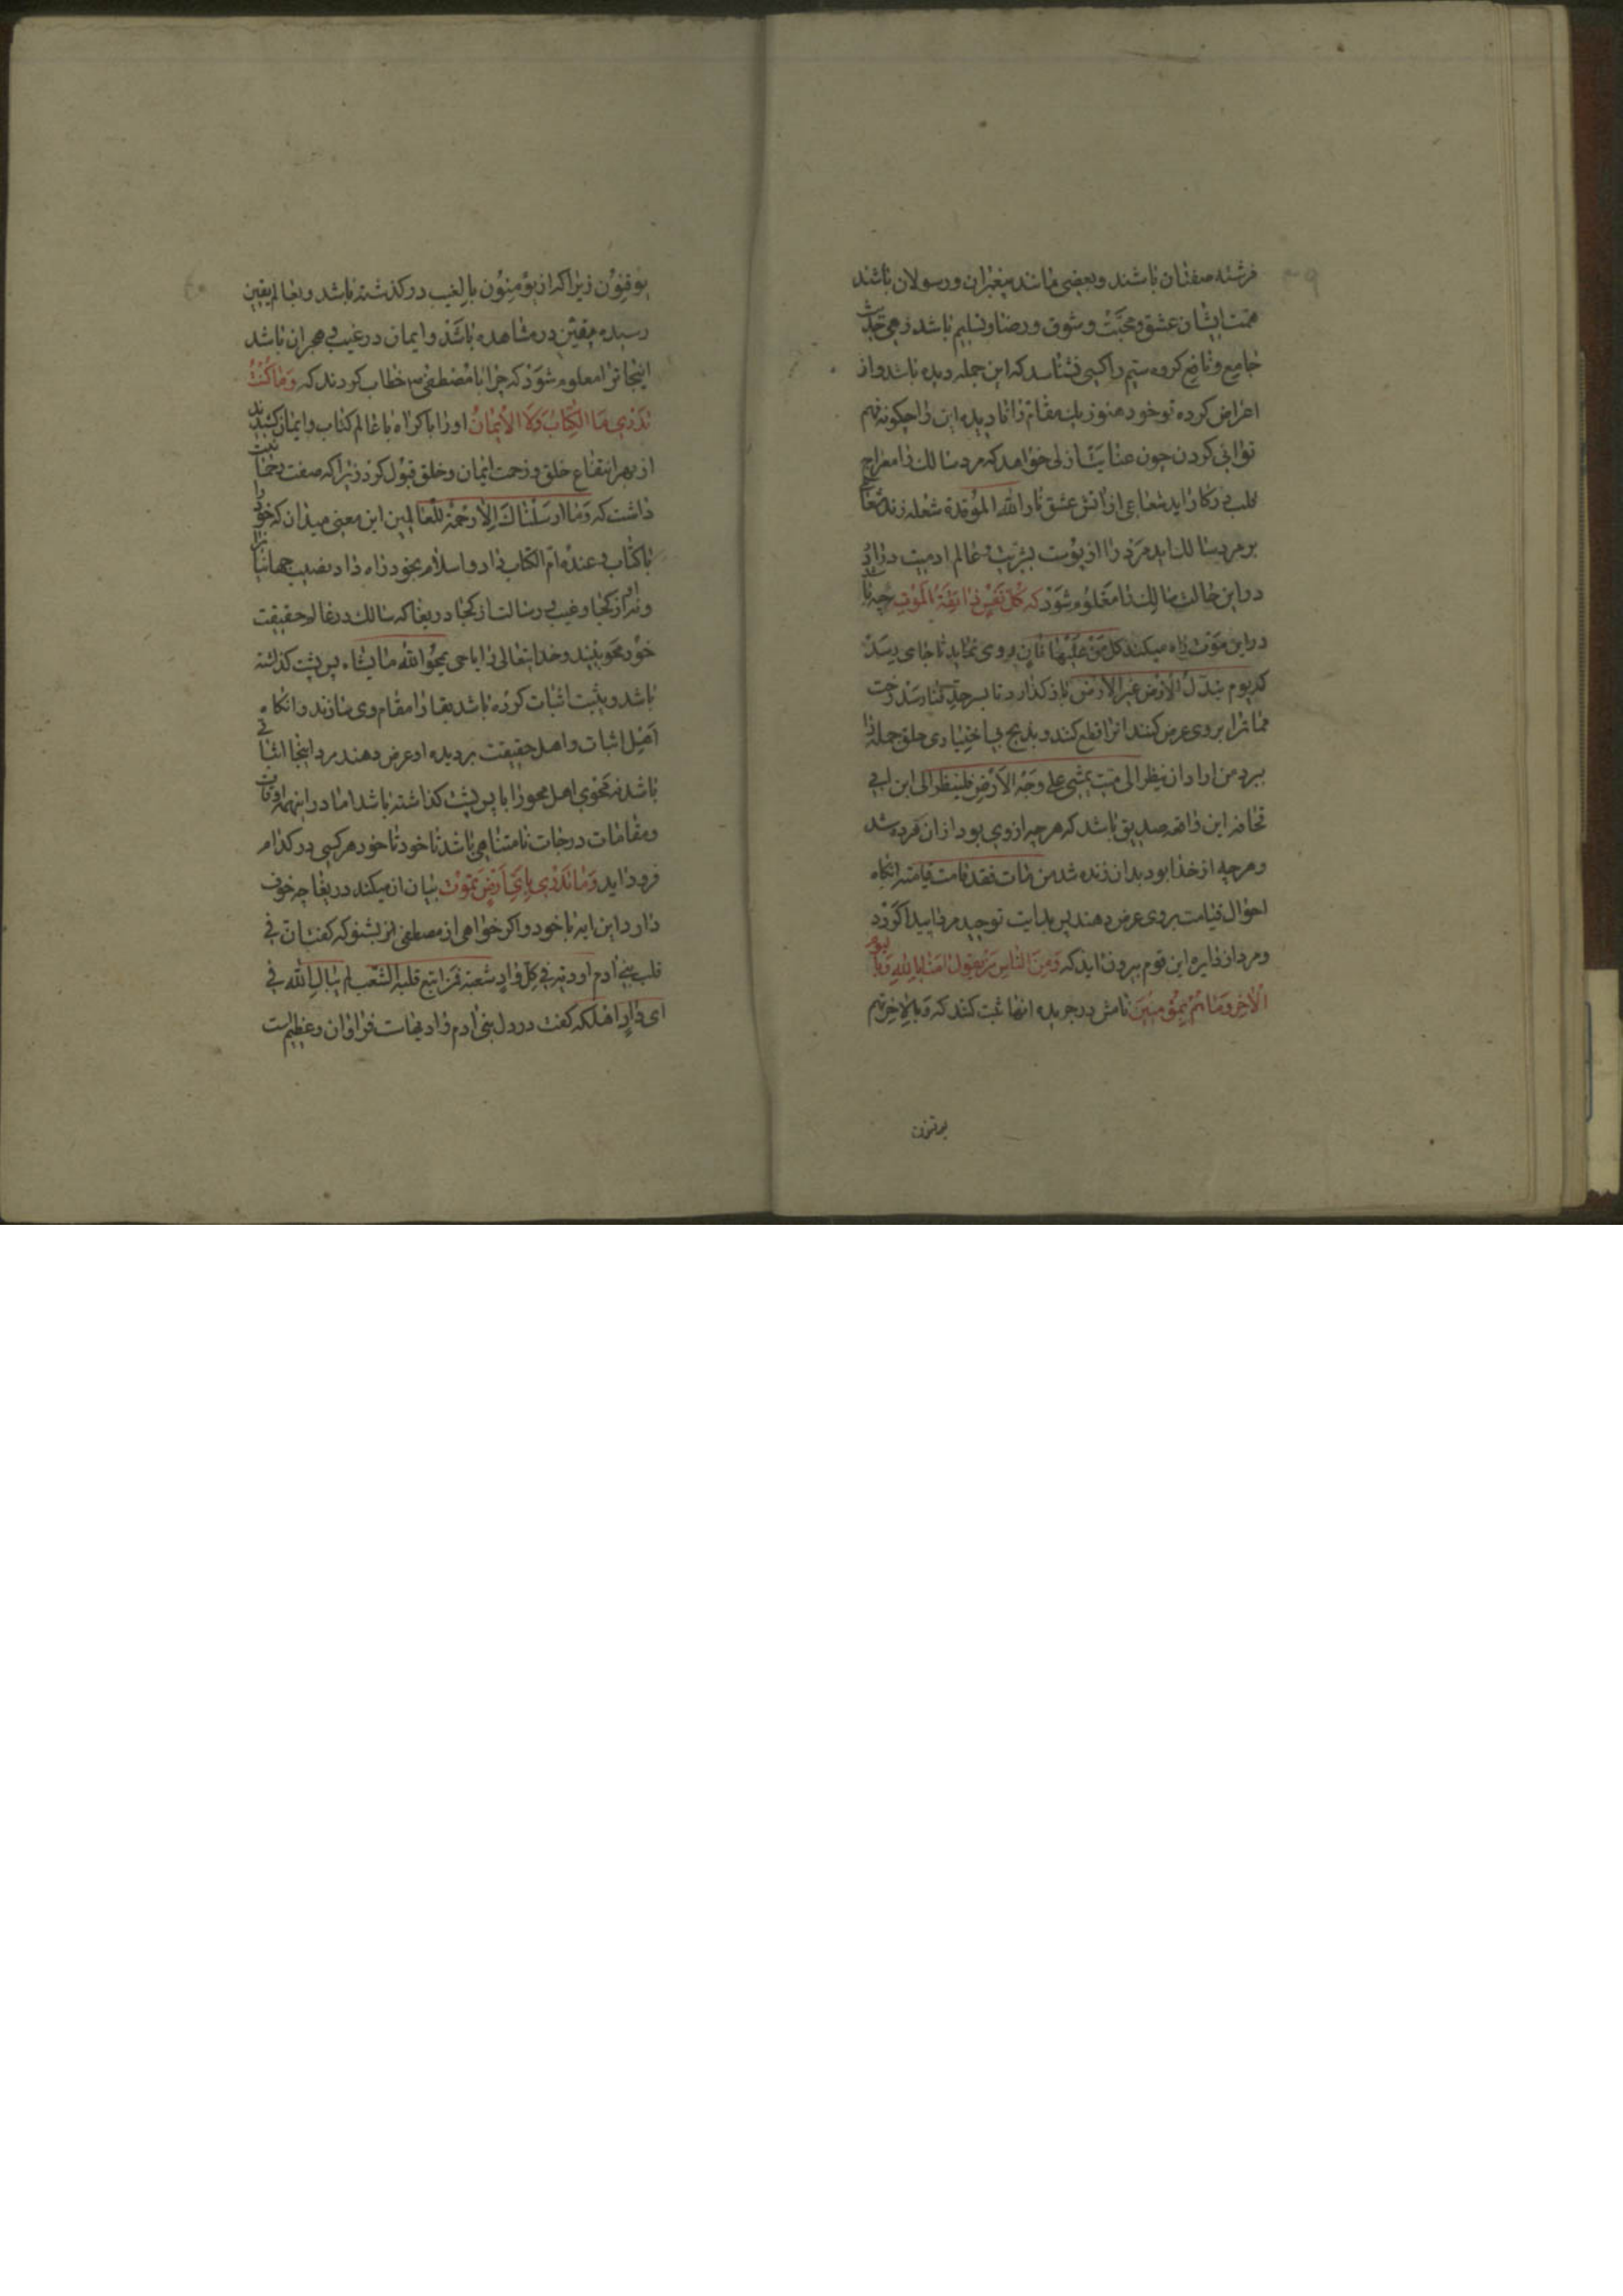 فرشته صفتان باشند و بعضی مانند پیغبران و رسولان باشند
همت ایشان عشق و محبت و شوق و رضا و تسلیم باشد زهی حدیث
جامع و نافع کروه سیم را کسی نشناسد که این جمله دیده باشد و از
اعراض کرده تو خود هنوز یک مقام را نادیده این را چکونه فهم
توانی کردن چون عنایت ازلی خواهد که مرد سالک را معراج
قلب در کار اید شعاعی از اتش عشق نار الله الموقدة شعله زند شعاع
بر مرد سالک اید مرد را از پوست بشریت و عالم ادمیت دراد
در این حالت سالک را معلوم شود که کل نفس ذائقة الموت چه باشد
در این موت راه میکند کل من علیها فان بروی نماید تا جای رسد
که یوم تبدل الارض غیر الارض باز کذارد تا بسرحد فنا رسد رخت
مماترا بروی عرض کنند انرا قطع کنند و بذبح بی اختیاری حلق جمله را
ببرد من اراد ان ینظر الی میت یمشی علی وجه الارض فلینظر الی ابن ابی
قحافه ابن واقعه صدیق باشد که هر چه از وی بود از ان مرده شد
و هر چه از خدا بود بدان زنده شد من مات فقد قامت قیامته انکاه
احوال قیامت بروی عرض دهند پس بدایت توحید مرد را پیدا کردد
و مرد از دایره این قوم بیرون اید که و من الناس من یقول امنا بالله و بالیوم
الاخر و ما هم بمؤمنین نامش در جریده انها ثبت کنند که و بالاخرة هم
یوقنون
یوقنون زیرا که از یؤمنون بالغیب در کذشته باشد و بعالم یقین
رسیده یقین در مشاهده باشد و ایمان در غیب و هجران باشد
اینجا ترا معلوم شود که چرا با مصطفی ص خطاب کردند که و ما کنت
تدری ما الکتاب و لا الایمان او را باکراه با عالم کتاب و ایمان کشیدند
از بهر انتفاع خلق و زحمت ایمان و خلق قبول کرد زیرا که صفت رحمت
داشت که و ما ارسلناک الا رحمة للعالمین این معنی میدان که خود را
با کتاب و عنده ام الکتاب داد و اسلام بخود راه داد نصیب جهانیانرا
و نه او از کجا و غیب و رسالت از کجا دریغا که سالک در عالم حقیقت
خود محو بیند و خدایتعالی را ماحی یمحوا الله ما یشاء پس پشت کذاشته
باشد و یثبت اثبات کرده باشد بقا را مقام وی سازند و انکاه
اهل اثبات و اهل حقیقت بر دیده او عرض دهند برد اینجا اثباتی
باشد نه محوی اهل محو را با پس پشت کذاشته باشد اما در اینهمه اوقات
و مقامات درجات نامتناهی باشد تا خود تا خود هر کسی در کدام
فرود اید و ما تدری بای ارض تموت بیان از میکند دریغا چه خوف
دارد این ایه با خود و اکر خواهی از مصطفی نیز بشنو که کفت ان فی
قلب بنی ادم اودیه فی کل واد شعبة فمن اتبع قلبه الشعب لم یبال الله فی
ای واد اهلکه کفت در دل بنی ادم وادیهاست فراوان و عظیمست